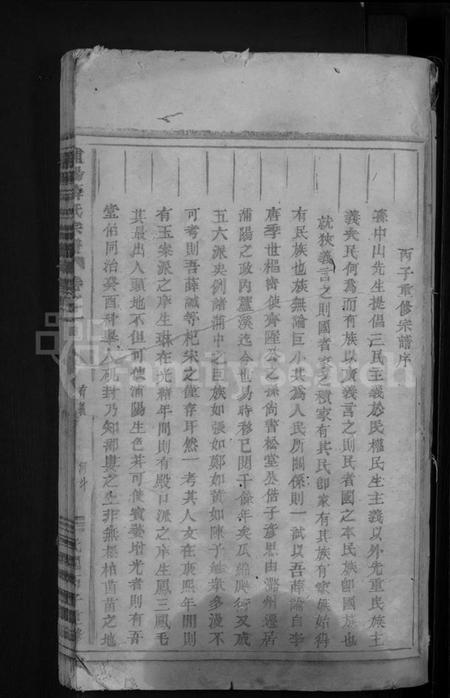 丙子重修宗譜序
孫中山先生提倡三民主義於民權民生主義以外先重民族主
義夫民何爲而有族以廣義言之則民者國之本民族卽國族也
就狹義言之則國者家之積家有其民卽家有其族有家無始得
有民族也族無論巨小其爲人民所關係則一試以吾薛論自李
唐季世樞密使齊隱公之孫尚書松堂公偕子彥思由潞州遷居
浦陽之政內蘆溪迄今世易時移已閱千餘年矣瓜綿爰衍又成
五六派矣例諸浦中之巨族如張如鄭如黃如陳子姓衆多漫不
可考則吾薛誠等杞宋之僅存耳然一考其人文在康熙年間則
有玉案派之庠生琳在光緒年間則有殿口派之庠生鳳三鳳毛
其最出人頭地不但可使浦陽生色并可使寶婺增光者則有吾
堂伯同治癸酉科舉人硯封乃知鄒與之生非無梗柟茁苗之地